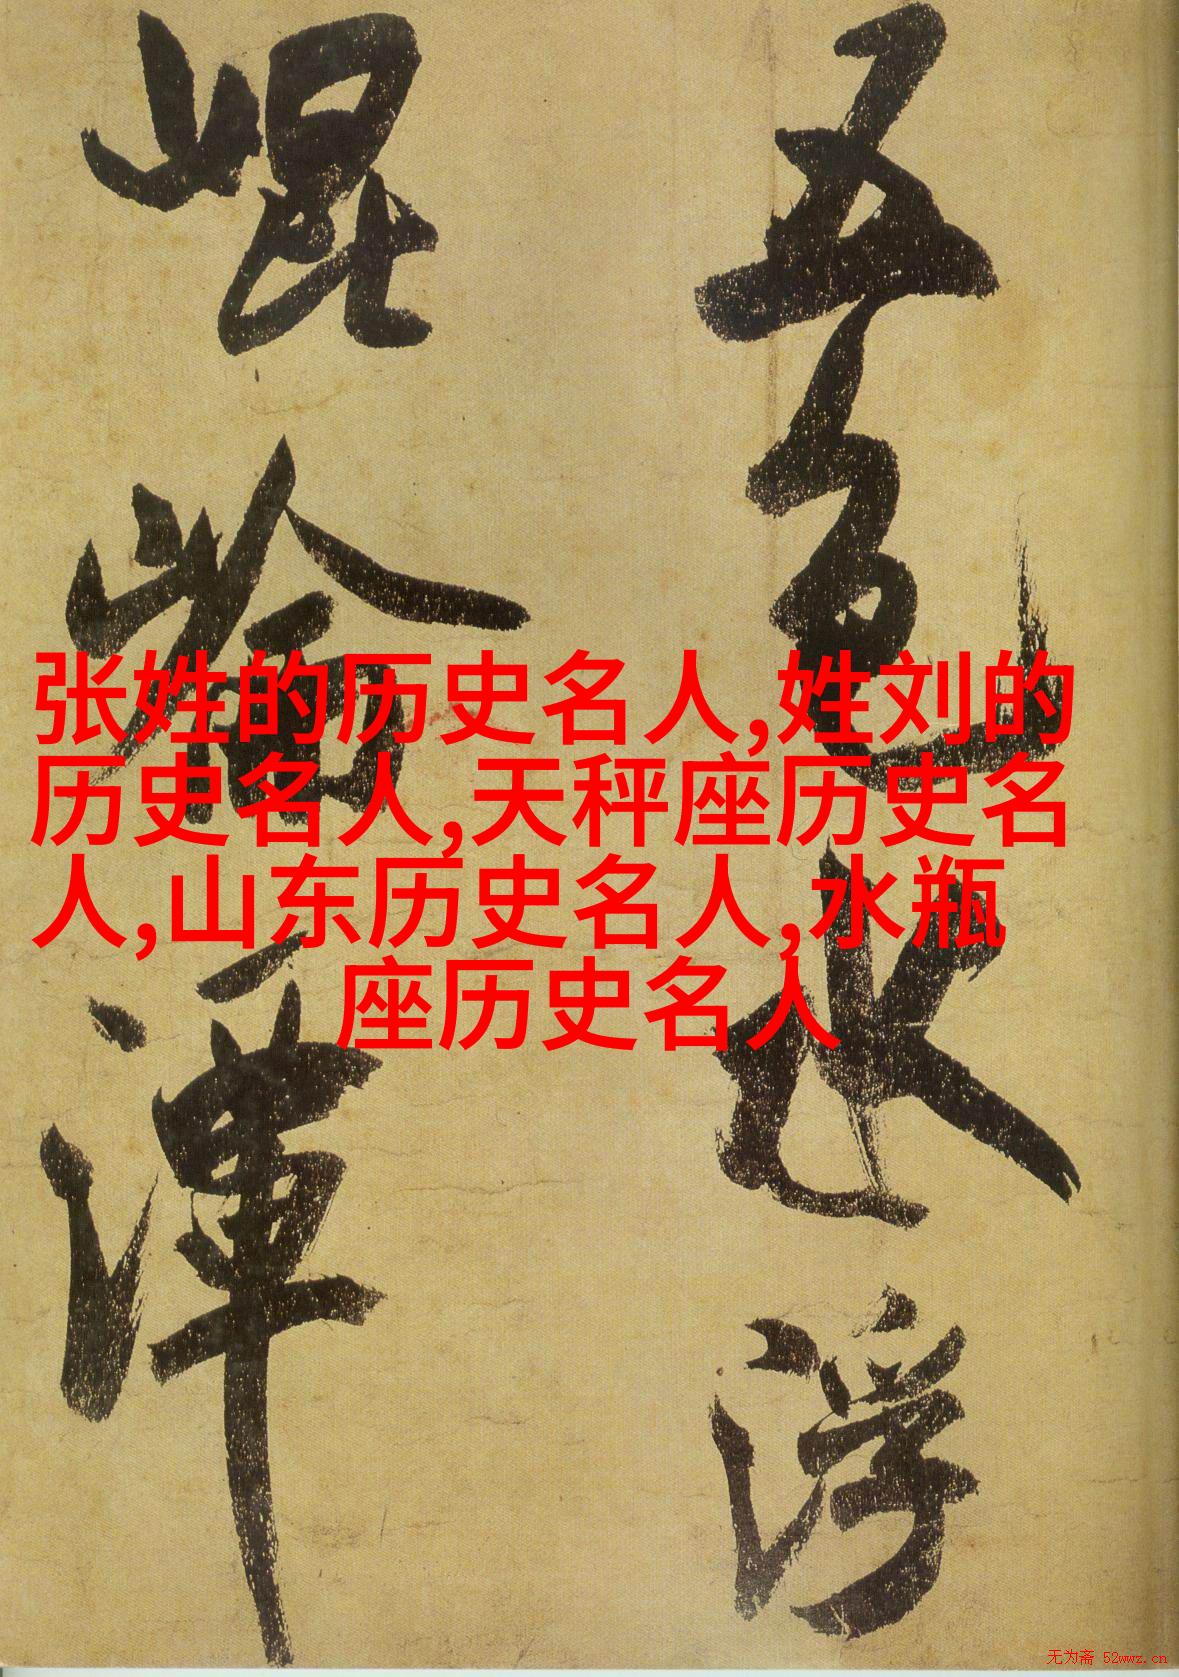 五色水浮
崐崘潭
张姓的历史名人,姓刘的
历史名人,天秤座历史名
人,山东历史名人,水瓶
座历史名人
无为斋 52wwz.cn